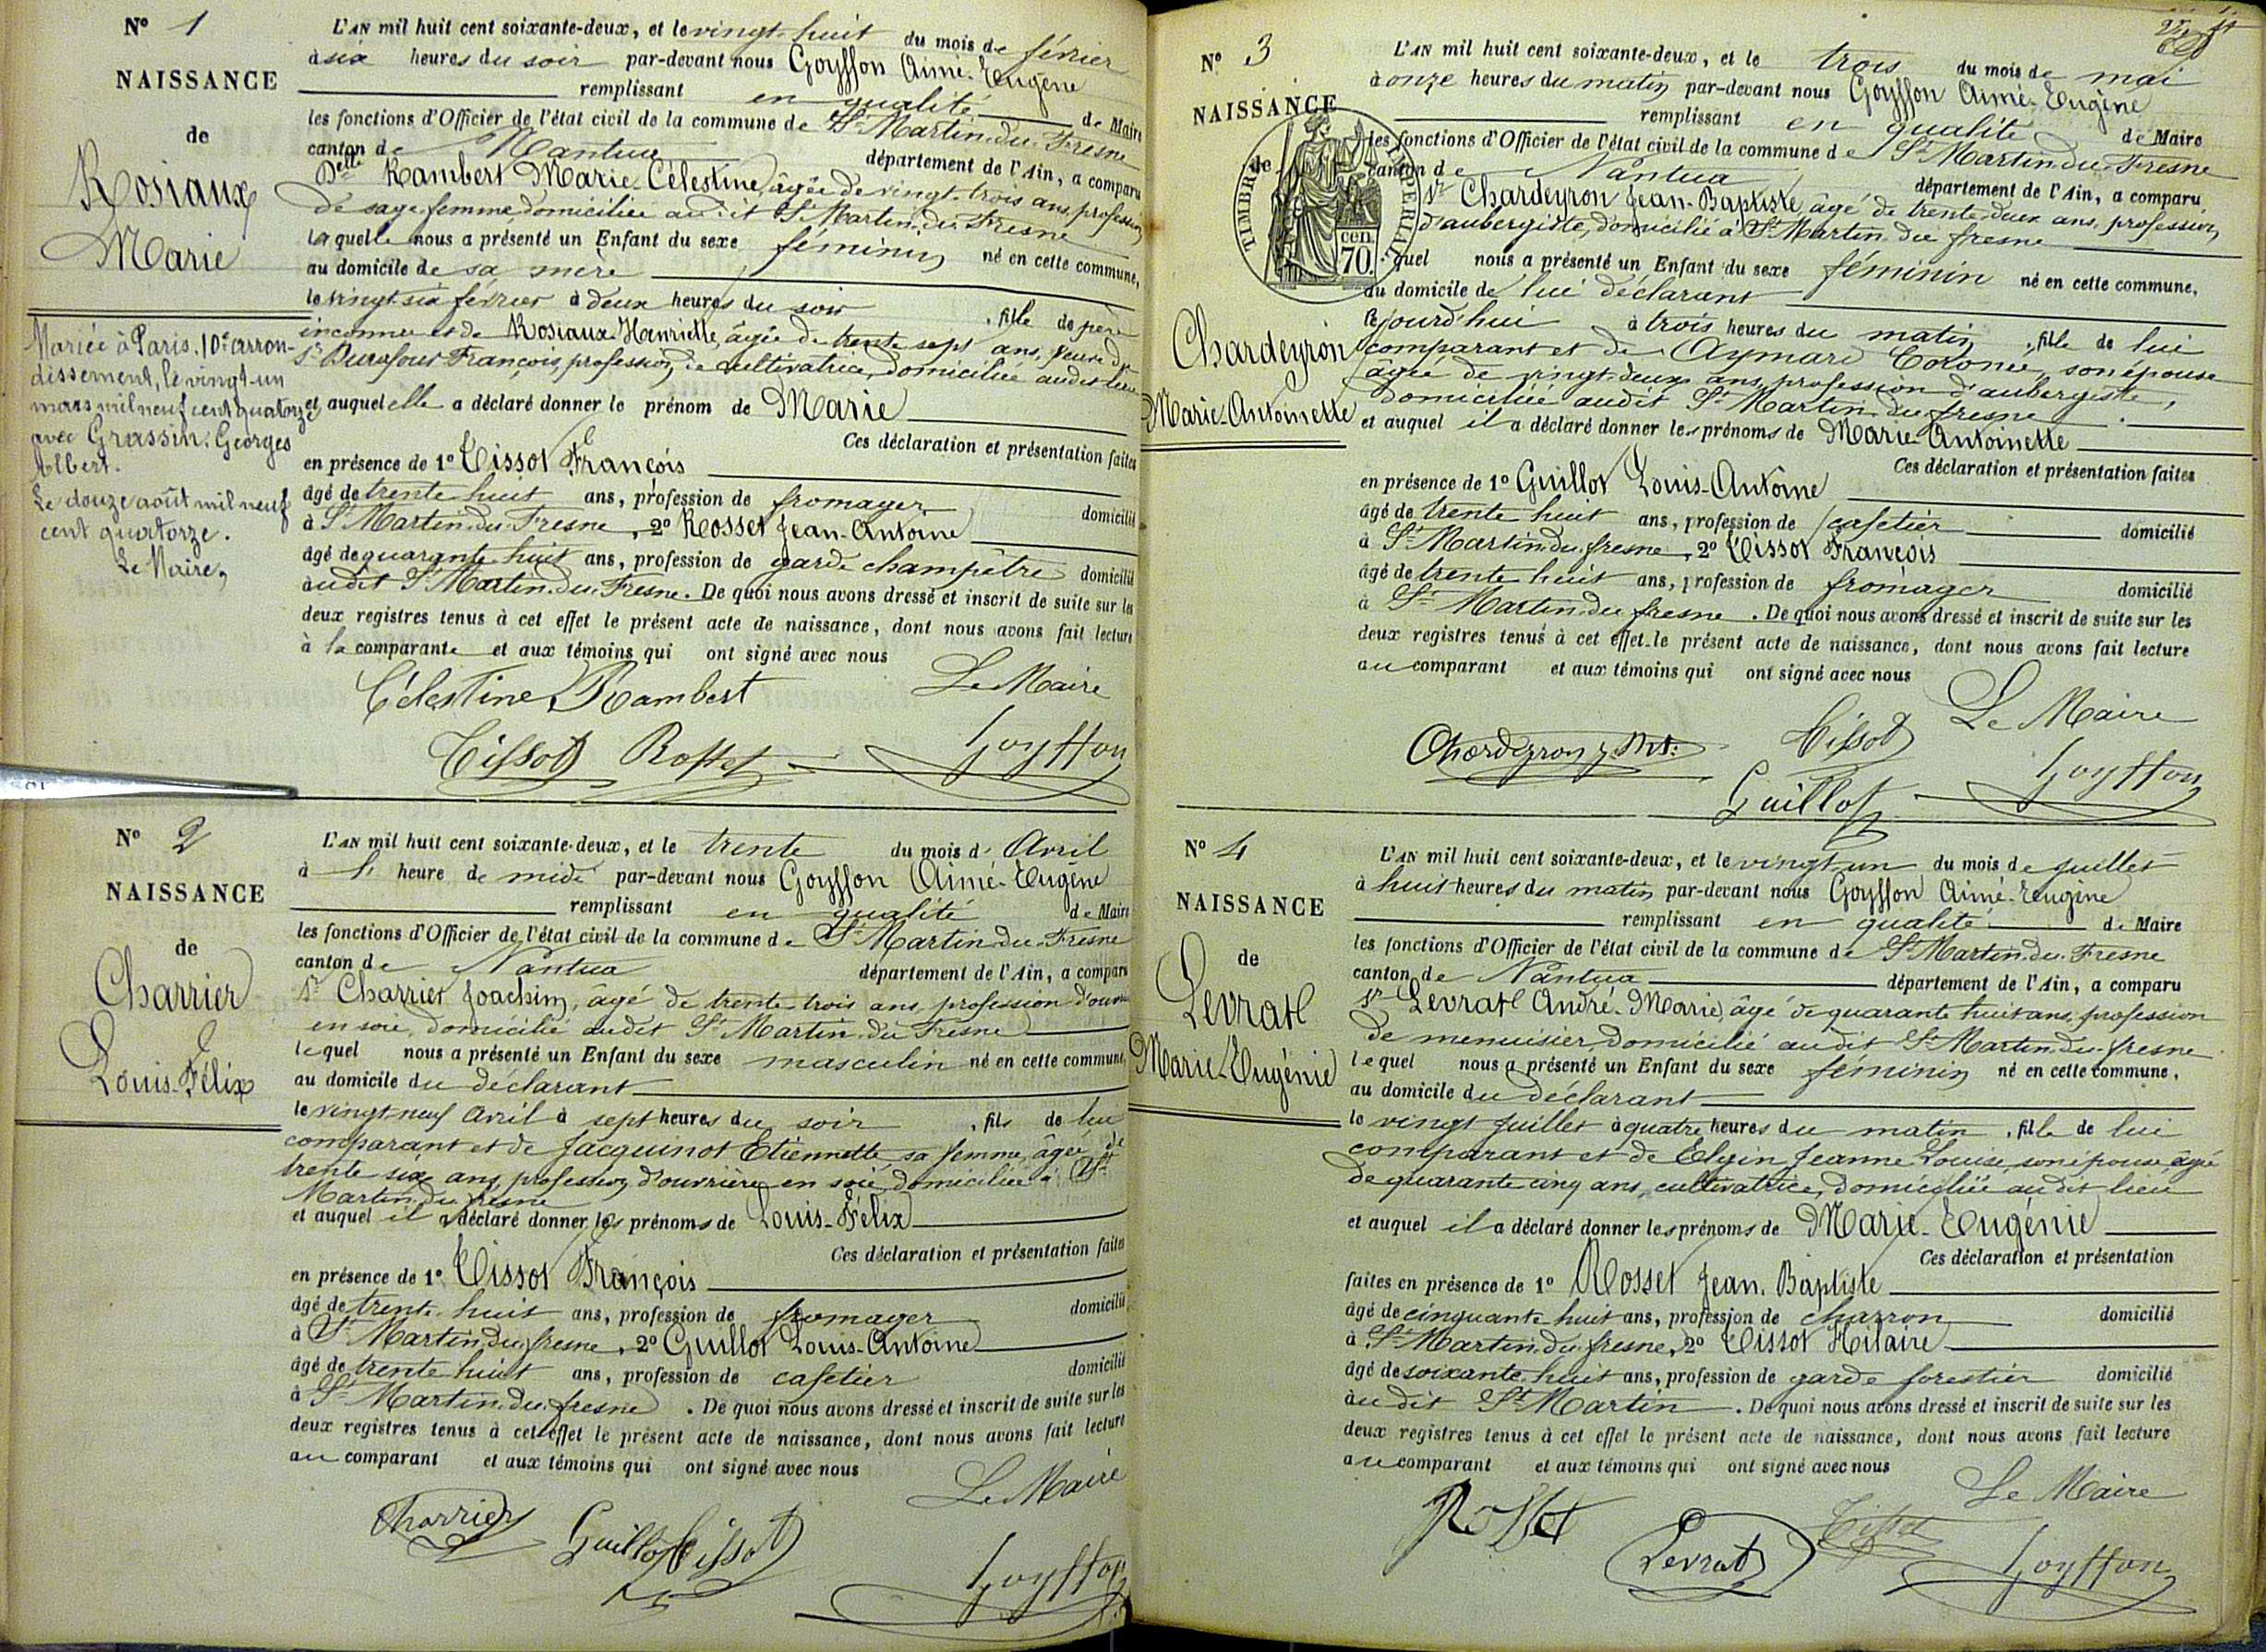 N° 1
NAISSANCE
de
Rosiaux
Marie
Mariée à Paris, 10e arron-
dissement, le vingt-un
mars mil neuf cent quatorze
avec Grassin Georges
Albert.
Le douze août mil neuf
cent quatorze.
Le Maire,
L'AN mil huit cent soixante-deux, et le vingt-huit du mois de février
à six heures du soir par-devant nous Goyffon Aimé-Eugène
remplissant en qualité de Maire
les fonctions d'Officier de l'état civil de la commune de St Martin-du-Fresne
canton de Nantua département de l'Ain, a comparu
Delle Rambert Marie-Célestine, âgée de vingt-trois ans, profession
de sage femme, domiciliée audit St Martin-du-Fresne
laquelle nous a présenté un Enfant du sexe féminin né en cette commune,
au domicile de sa mère
le vingt-six février à deux heures du soir , fille de père
inconnu et de Rosiaux Henriette, âgée de trente sept ans, veuve de
Sr Durafour François, profession de cultivatrice, domiciliée audit lieu
et auquel elle a déclaré donner le prénom de Marie
Ces déclaration et présentation faites
en présence de 1° Tissot François
âgé de trente huit ans, profession de fromager domicilié
à St Martin-du-Fresne, 2° Rosset Jean-Antoine
âgé de quarante huit ans, profession de garde champêtre domicilié
audit St Martin-du-Fresne. De quoi nous avons dressé et inscrit de suite sur les
deux registres tenus à cet effet le présent acte de naissance, dont nous avons fait lecture
à la comparante et aux témoins qui ont signé avec nous
Le Maire
Célestine Rambert
Tissot Rosset Goyffon
N° 2
NAISSANCE
de
Charrier
Louis-Félix
L'AN mil huit cent soixante-deux, et le trente du mois d'Avril
à 1 heure de midi par-devant nous Goyffon Aimé-Eugène
remplissant en qualité de Maire
les fonctions d'Officier de l'état civil de la commune de St Martin-du-Fresne
canton de Nantua département de l'Ain, a comparu
Sr Charrier Joachim, âgé de trente trois ans, profession d'ouvrier
en soie, domicilié audit St Martin-du-Fresne
lequel nous a présenté un Enfant du sexe masculin né en cette commune,
au domicile du déclarant
le vingt neuf Avril à sept heures du soir , fils de lui
comparant et de Jacquinot Etiennette sa femme, âgée de
trente six ans, profession d'ouvrière en soie, domiciliée à St
Martin-du-fresne
et auquel il a déclaré donner les prénoms de Louis-Félix
Ces déclaration et présentation faites
en présence de 1° Tissot François
âgé de trente huit ans, profession de fromager domicilié
à St Martin-du-fresne, 2° Guillot Louis-Antoine
âgé de trente huit ans, profession de cafetier domicilié
à St Martin-du-fresne . De quoi nous avons dressé et inscrit de suite sur les
deux registres tenus à cet effet le présent acte de naissance, dont nous avons fait lecture
au comparant et aux témoins qui ont signé avec nous
Le Maire
Charrier Guillot Tissot
Goyffon
N° 3
NAISSANCE
de
TIMBRE IMPERIAL
70 cen.
Chardeyron
Marie-Antoinette
L'AN mil huit cent soixante-deux, et le trois du mois de mai
à onze heures du matin par-devant nous Goyffon Aimé-Eugène
remplissant en qualité de Maire
les fonctions d'Officier de l'état civil de la commune de St Martin-du-Fresne
canton de Nantua département de l'Ain, a comparu
Sr Chardeyron Jean-Baptiste âgé de trente-deux ans, profession
d'aubergiste, domicilié à St Martin-du-fresne
lequel nous a présenté un Enfant du sexe féminin né en cette commune,
au domicile de lui déclarant
cejourd'hui à trois heures du matin , fille de lui
comparant et de Aymard Coronée, son épouse
âgée de vingt-deux ans, profession d'aubergiste,
domiciliée audit St Martin-du-fresne
et auquel il a déclaré donner les prénoms de Marie-Antoinette
Ces déclaration et présentation faites
en présence de 1° Guillot Louis-Antoine
âgé de trente huit ans, profession de cafetier domicilié
à St Martin-du-fresne, 2° Tissot François
âgé de trente huit ans, profession de fromager domicilié
à St Martin-du-fresne . De quoi nous avons dressé et inscrit de suite sur les
deux registres tenus à cet effet le présent acte de naissance, dont nous avons fait lecture
au comparant et aux témoins qui ont signé avec nous
Le Maire
Chardeyron Tissot
Guillot Goyffon
N° 4
NAISSANCE
de
Levrat
Marie-Eugénie
L'AN mil huit cent soixante-deux, et le vingt-un du mois de juillet
à huit heures du matin par-devant nous Goyffon Aimé-Eugène
remplissant en qualité de Maire
les fonctions d'Officier de l'état civil de la commune de St Martin-du-Fresne
canton de Nantua département de l'Ain, a comparu
Sr Levrat André-Marie, âgé de quarante huit ans, profession
de menuisier, domicilié audit St Martin-du-fresne
lequel nous a présenté un Enfant du sexe féminin né en cette commune,
au domicile du déclarant
le vingt juillet à quatre heures du matin , fille de lui
comparant et de Elgin Jeanne Louise, son épouse, âgée
de quarante cinq ans, cultivatrice, domiciliée audit lieu
et auquel il a déclaré donner les prénoms de Marie-Eugénie
Ces déclaration et présentation
faites en présence de 1° Rosset Jean-Baptiste
âgé de cinquante huit ans, profession de charron domicilié
à St Martin-du-fresne, 2° Tissot Hilaire
âgé de soixante huit ans, profession de garde forestier domicilié
audit St Martin . De quoi nous avons dressé et inscrit de suite sur les
deux registres tenus à cet effet le présent acte de naissance, dont nous avons fait lecture
au comparant et aux témoins qui ont signé avec nous
Le Maire
Rosset
Levrat Tissot Goyffon